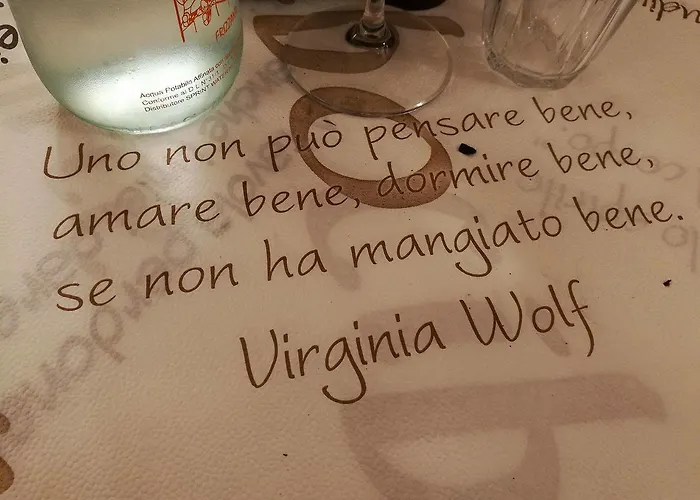 Acqua Potabile Affinata
Conforme al D.L. N°
Distributore SPRINT WATER
Uno non può pensare bene,
amare bene, dormire bene,
se non ha mangiato bene.
Virginia Wolf